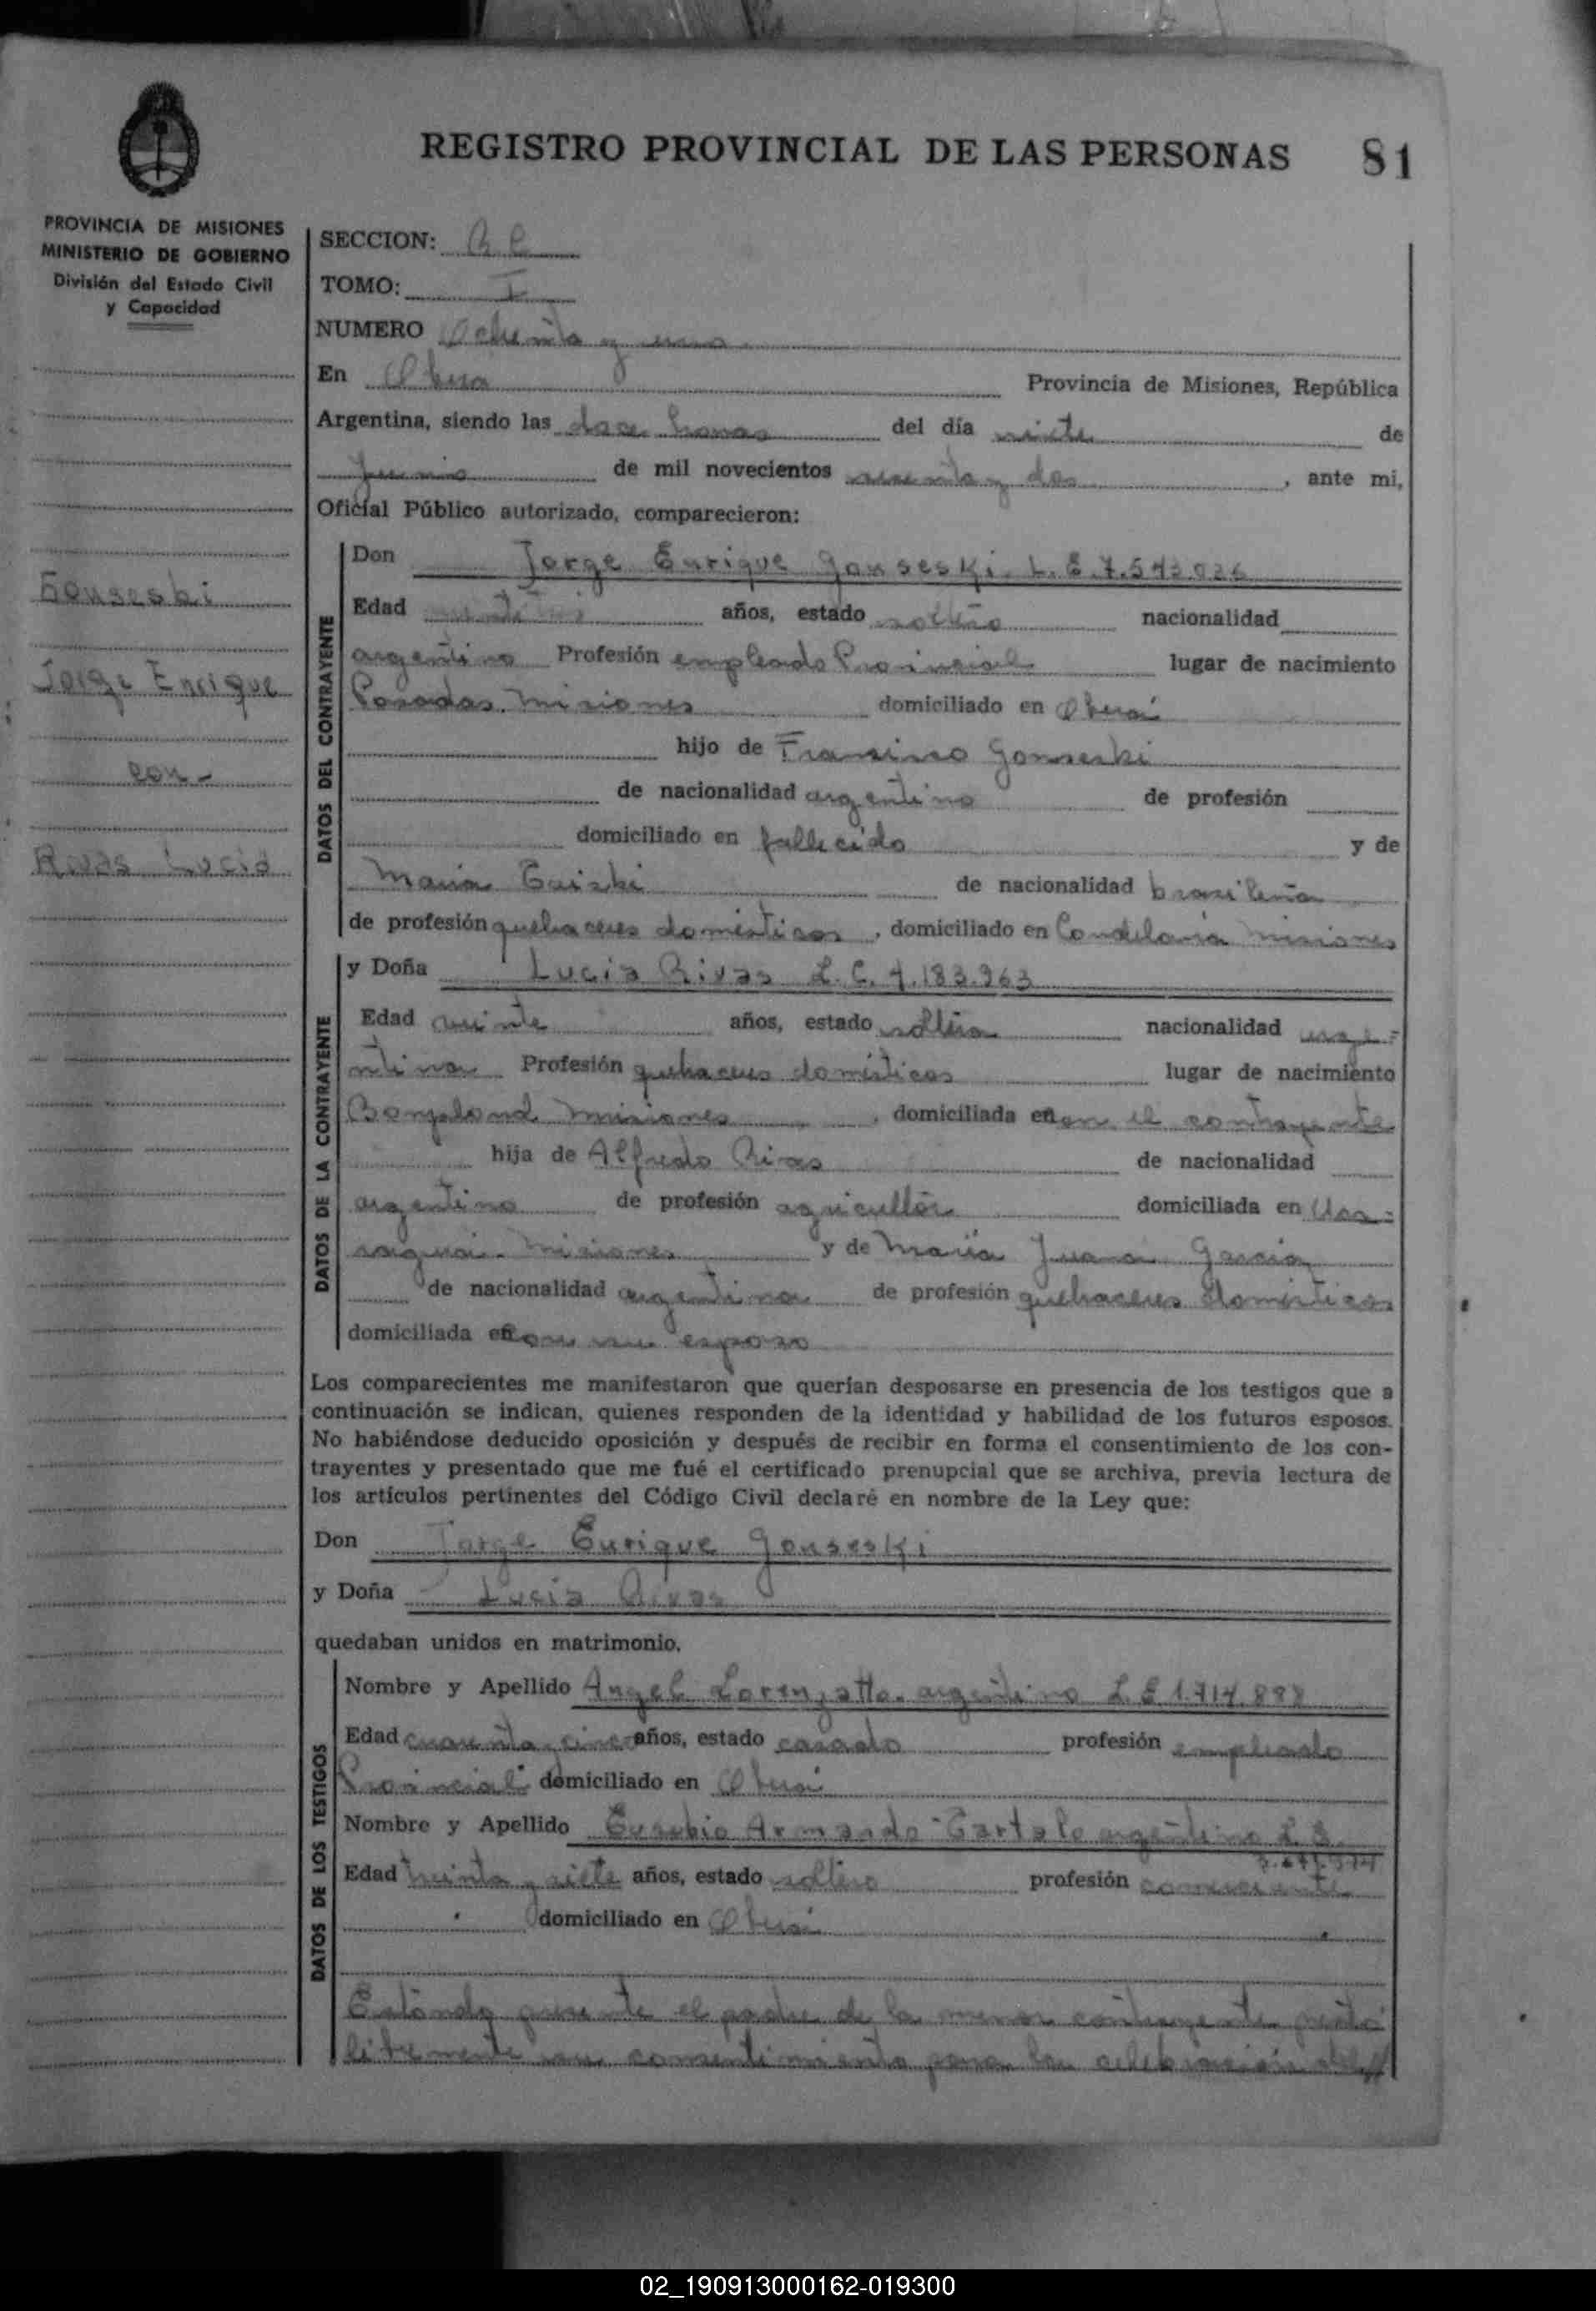 REGISTRO PROVINCIAL DE LAS PERSONAS 81
PROVINCIA DE MISIONES
MINISTERIO DE GOBIERNO
División del Estado Civil
y Capacidad
Gonseski
Jorge Enrique
con-
Rivas Lucia
SECCION:
TOMO: I
NUMERO Ochenta y uno
En Obera Provincia de Misiones, República
Argentina, siendo las doce horas del día siete de
junio de mil novecientos sesenta y dos, ante mi,
Oficial Público autorizado, comparecieron:
DATOS DEL CONTRAYENTE
Don Jorge Enrique Gonseski. L. E. 7.573.026
Edad años, estado soltero nacionalidad
argentino Profesión empleado Provincial lugar de nacimiento
Posadas. Misiones domiciliado en Oberá
hijo de Francisco Gonseski
de nacionalidad argentino de profesión
domiciliado en fallecido y de
Maria de nacionalidad brasileña
de profesión quehaceres domésticos, domiciliado en Candelaria Misiones
DATOS DE LA CONTRAYENTE
y Doña Lucia Rivas L. C. 4.183.963
Edad veinte años, estado soltera nacionalidad arge-
ntina Profesión quehaceres domésticos lugar de nacimiento
Bonpland Misiones, domiciliada en con el contrayente
hija de Alfredo Rivas de nacionalidad
argentino de profesión agricultor domiciliada en
Misiones y de Maria Juana Garcia
de nacionalidad argentina de profesión quehaceres domésticos
domiciliada en con su esposo
Los comparecientes me manifestaron que querían desposarse en presencia de los testigos que a
continuación se indican, quienes responden de la identidad y habilidad de los futuros esposos.
No habiéndose deducido oposición y después de recibir en forma el consentimiento de los con-
trayentes y presentado que me fué el certificado prenupcial que se archiva, previa lectura de
los artículos pertinentes del Código Civil declaré en nombre de la Ley que:
Don Jorge Enrique Gonseski
y Doña Lucia Rivas
quedaban unidos en matrimonio.
DATOS DE LOS TESTIGOS
Nombre y Apellido Angel Lorenzatto. argentino L E 1.714.898
Edad cuarenta y cinco años, estado casado profesión empleado
Provincial domiciliado en Oberá
Nombre y Apellido Eusebio Armando argentino L. E.
Edad treinta y siete años, estado soltero profesión comerciante
domiciliado en Oberá
Estando presente el padre de la menor contrayente prestó
libremente su consentimiento para la celebración del//
02_190913000162-019300